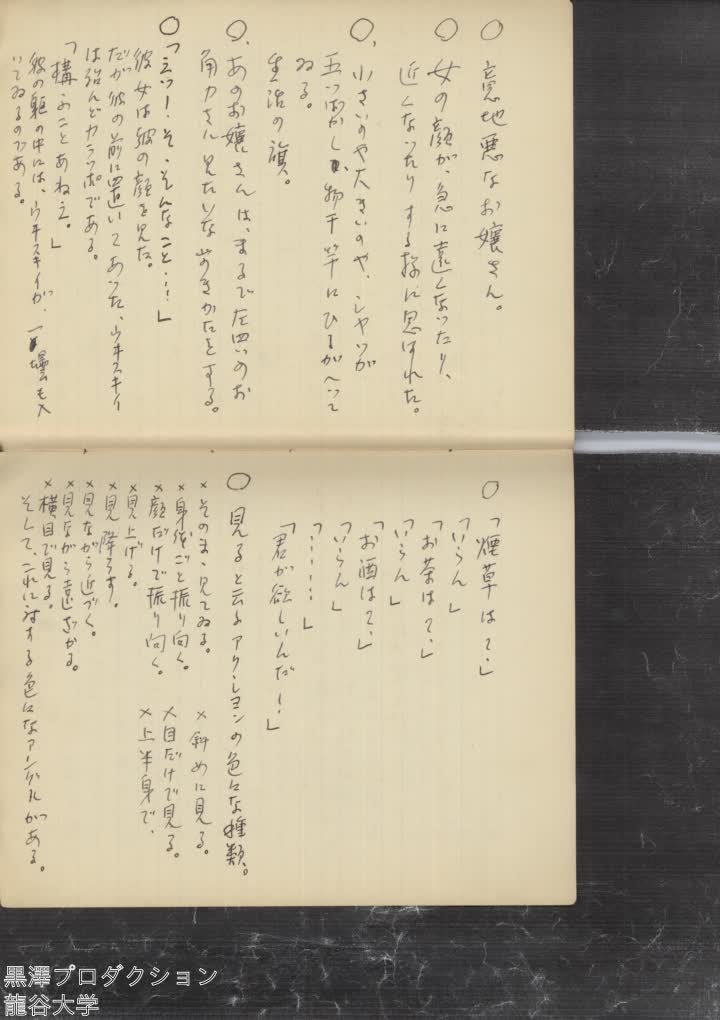 ○ 意地悪なお嬢さん。
○ 女の顔が、急に遠くなったり、
近くなったりする様に思はれた。
○、小さいのや大きいのや、シャツが
五つばかし物干竿にひるがへって
ゐる。
生活の旗。
○、あのお嬢さんは、まるで左四つのお
角力さん見たいな歩きかたをする。
○「えッ！そ、そんなこと…！」
彼女は彼の顔を見た。
だが彼の前に置いてあった、ウヰスキイ
は殆んどカラッポである。
「構ふことあねえ。」
彼の軀の中には、ウヰスキイが、一壜も入
いてゐるのである。
○ 「煙草は？」
「いらん」
「お茶は？」
「いらん」
「お酒は？」
「いらん」
「……」
「君が欲しいんだ！」
○ 見ると云ふアクションの色々な種類。
×そのまゝ見てゐる。
×身体ごと振り向く。
×顔だけで振り向く。
×見上げる。
×見降ろす。
×見ながら近づく。
×見ながら遠ざかる。
×横目で見る。
×斜めに見る。
×目だけで見る。
×上半身で、
そして、これに対する色々なアングルがある。
黒澤プロダクション
龍谷大学